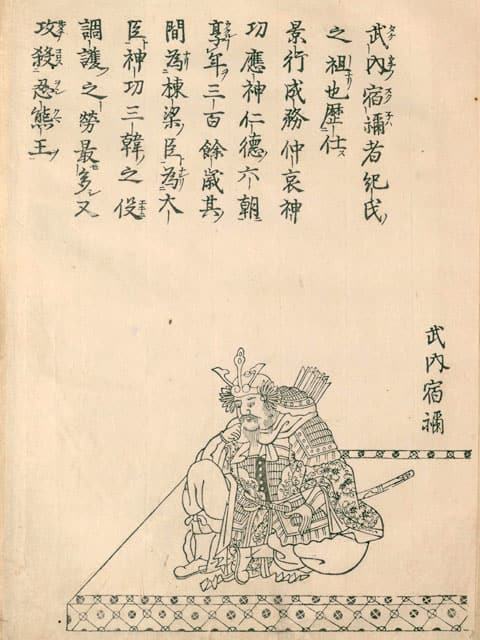 武內宿禰者紀氏
之祖也歴仕
景行成務仲哀神
功應神仁德六朝
享年三百餘歳其
間為棟梁臣為大
臣神功三韓之役
調護之勞最多又
攻殺忍熊王
武內宿禰